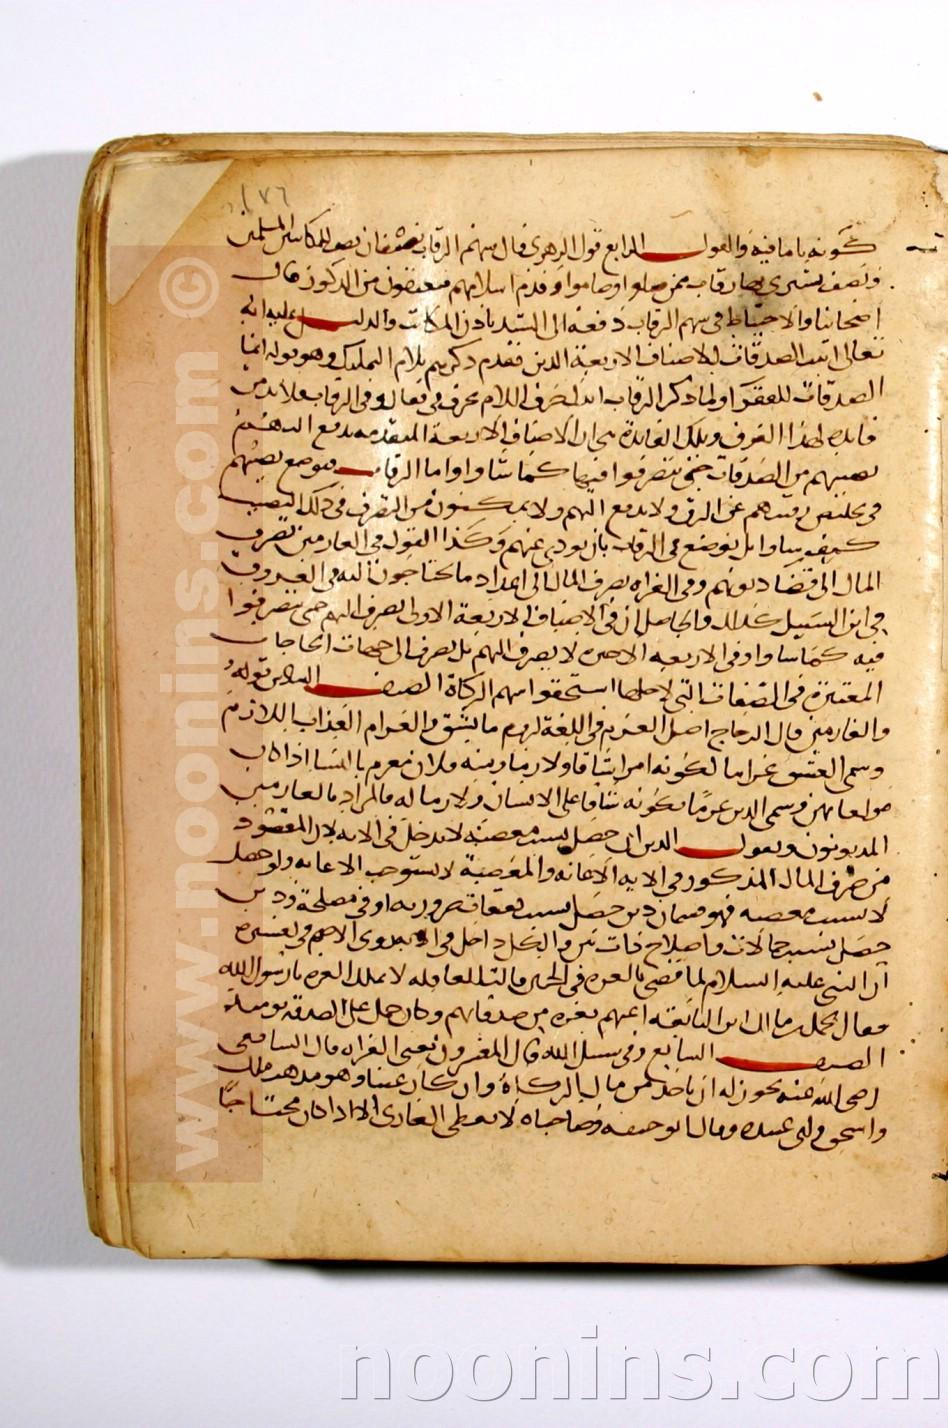 ١٧٦
كونه باما فيه والقول الرابع قول الزهري قال سهم الرقاب نصفان نصف للمكاتبين المسلمين
ونصف يشتري به رقاب ممن صلوا وصاموا وقدم اسلامهم فيعتقون من الزكوة قال
اصحابنا والاحتياط في سهم الرقاب دفعه الى السيد باذن المكاتب والدليل عليه انه
تعالى اثبت الصدقات للاصناف الاربعة الذين تقدم ذكرهم بلام التمليك وهو قوله انما
الصدقات للفقرا ولما ذكر الرقاب ابدل حرف اللام بحرف في فقال وفي الرقاب فلا بد من
فايدة لهذا الفرق وتلك الفايدة هي ان الاصناف الاربعة المتقدمة يدفع اليهم
نصيبهم من الصدقات حتى يتصرفوا فيها كما شاوا واما الرقاب فيوضع نصيبهم
في تخليص رقبتهم عن الرق ولا يدفع اليهم ولا يمكنون من التصرف في ذلك النصيب
كيف شاوا بل يوضع في الرقاب بان يودي عنهم وكذا القول في الغارمين يصرف
المال الى قضا ديونهم وفي الغزاة يصرف المال الى اعداد ما يحتاجون اليه في الغزو و
في ابن السبيل كذلك والحاصل ان في الاصناف الاربعة الاولى يصرف اليهم حتى يتصرفوا
فيه كما شاوا وفي الاربعة الاخيرة لا يصرف اليهم بل يصرف الى جهات الحاجات
المعتبرة في الصفات التي لاجلها استحقوا سهم الزكاة الصنف السادس قوله
والغارمين قال الزجاج اصل الغرم في اللغة لزوم ما يشق والغرام العذاب اللازم
وسمي العشق غراما لكونه امرا شاقا ولازما ومنه فلان مغرم بالنسا اذا كان
مولعا بهن وسمي الدين غرما لكونه شاقا على الانسان ولازما له فالمراد بالغارمين
المديونون ونقول الدين ان حصل بسبب معصية لا يدخل في الاية لان المقصود
من صرف المال المذكور في الاية الاعانة والمعصية لا تستوجب الاعانة ولو حصل
لا بسبب معصية فهو قسمان دين حصل بسبب نفقات ضرورية او في مصلحة ودين
حصل بسبب حمالات واصلاح ذات بين والكل داخل في الاية وروى الاصم في تفسيره
ان النبي عليه السلام لما قضى بالغرة في الجنين قالت العاقلة لا نملك الغرة يا رسول الله
فقال لحمل بن مالك ابن النابغة اعنهم بغرة من صدقاتهم وكان حمل على الصدقة يومئذ
الصنف السابع وفي سبيل الله قال المفسرون يعني الغزاة قال الشافعي
رضي الله عنه يجوز له ان ياخذ من مال الزكاة وان كان غنيا وهو مذهب ملك
واسحق وابي عبيد وقال ابو حنيفة وصاحباه لا يعطى الغازي الا اذا كان محتاجا
www.noonins.com ©
noonins.com